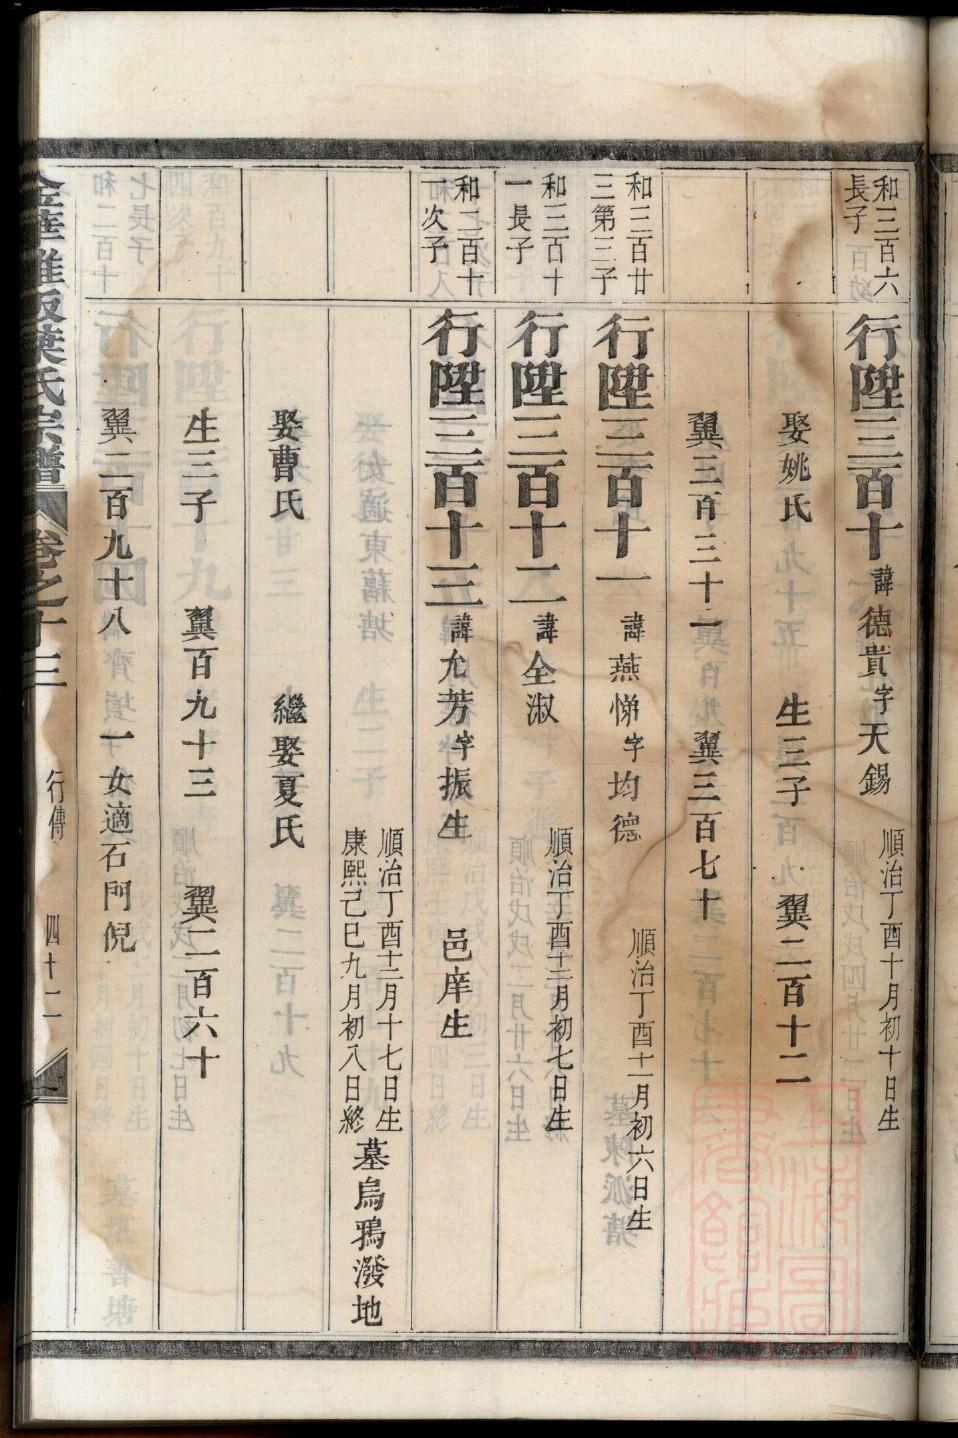 和三百六
長子
行陞三百十諱德貴字天錫
順治丁酉十月初十日生
娶姚氏 生三子 翼二百十二
翼三百三十一 翼三百七十
和三百廿
三第三子
行陞三百十一諱燕悌字均德
順治丁酉十一月初六日生
和三百十
一長子
行陞三百十二諱全淑
順治丁酉十二月初七日生
和三百十
一次子
行陞三百十三諱允芳字振生 邑庠生
順治丁酉十二月十七日生
康熙己巳九月初八日終
墓烏鴉潑地
娶曹氏 繼娶夏氏
生三子 翼百九十三 翼二百六十
翼二百九十八 一女適石門倪
葉氏宗譜 卷之十三 行傳 四十二